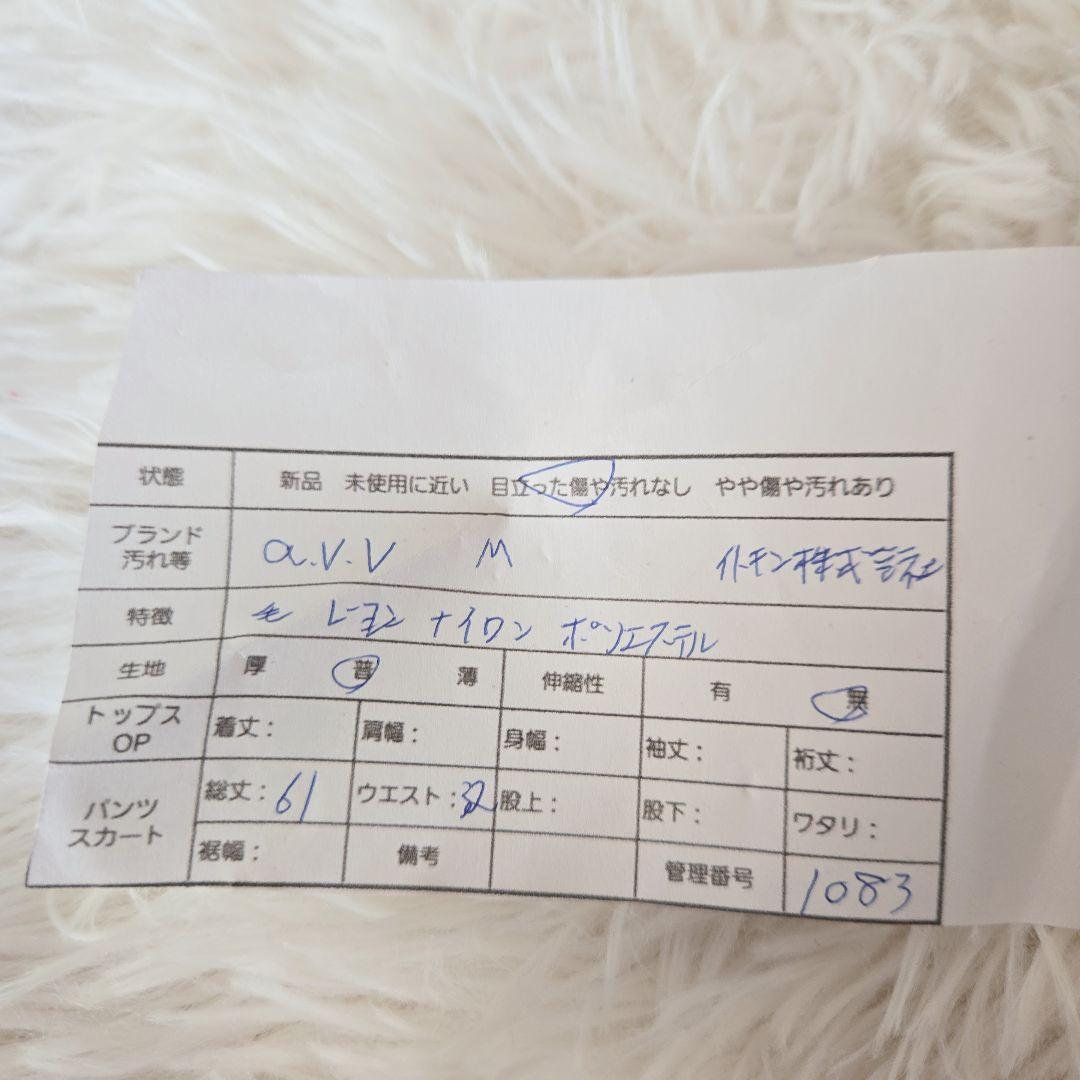 状態 新品 未使用に近い 目立った傷や汚れなし やや傷や汚れあり
ブランド
汚れ等 a.v.v M イトキン株式会社
特徴 毛 レーヨン ナイロン ポリエステル
生地 厚 普 薄 伸縮性 有 無
トップス
OP 着丈: 肩幅: 身幅: 袖丈: 裄丈:
パンツ
スカート 総丈:61 ウエスト: 股上: 股下: ワタリ:
裾幅: 備考 管理番号 1083